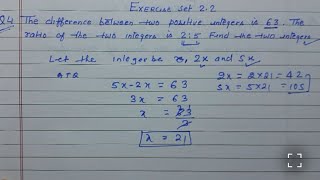 Exercise Set 2.2
Q4 The difference between two positive integers is 63. The
ratio of the two integers is 2:5 Find the two integers
Let the integer be x, 2x and 5x
ATQ
5x-2x = 63
3x = 63
x = 63/3
x = 21
2x = 2x21 = 42
5x = 5x21 = 105